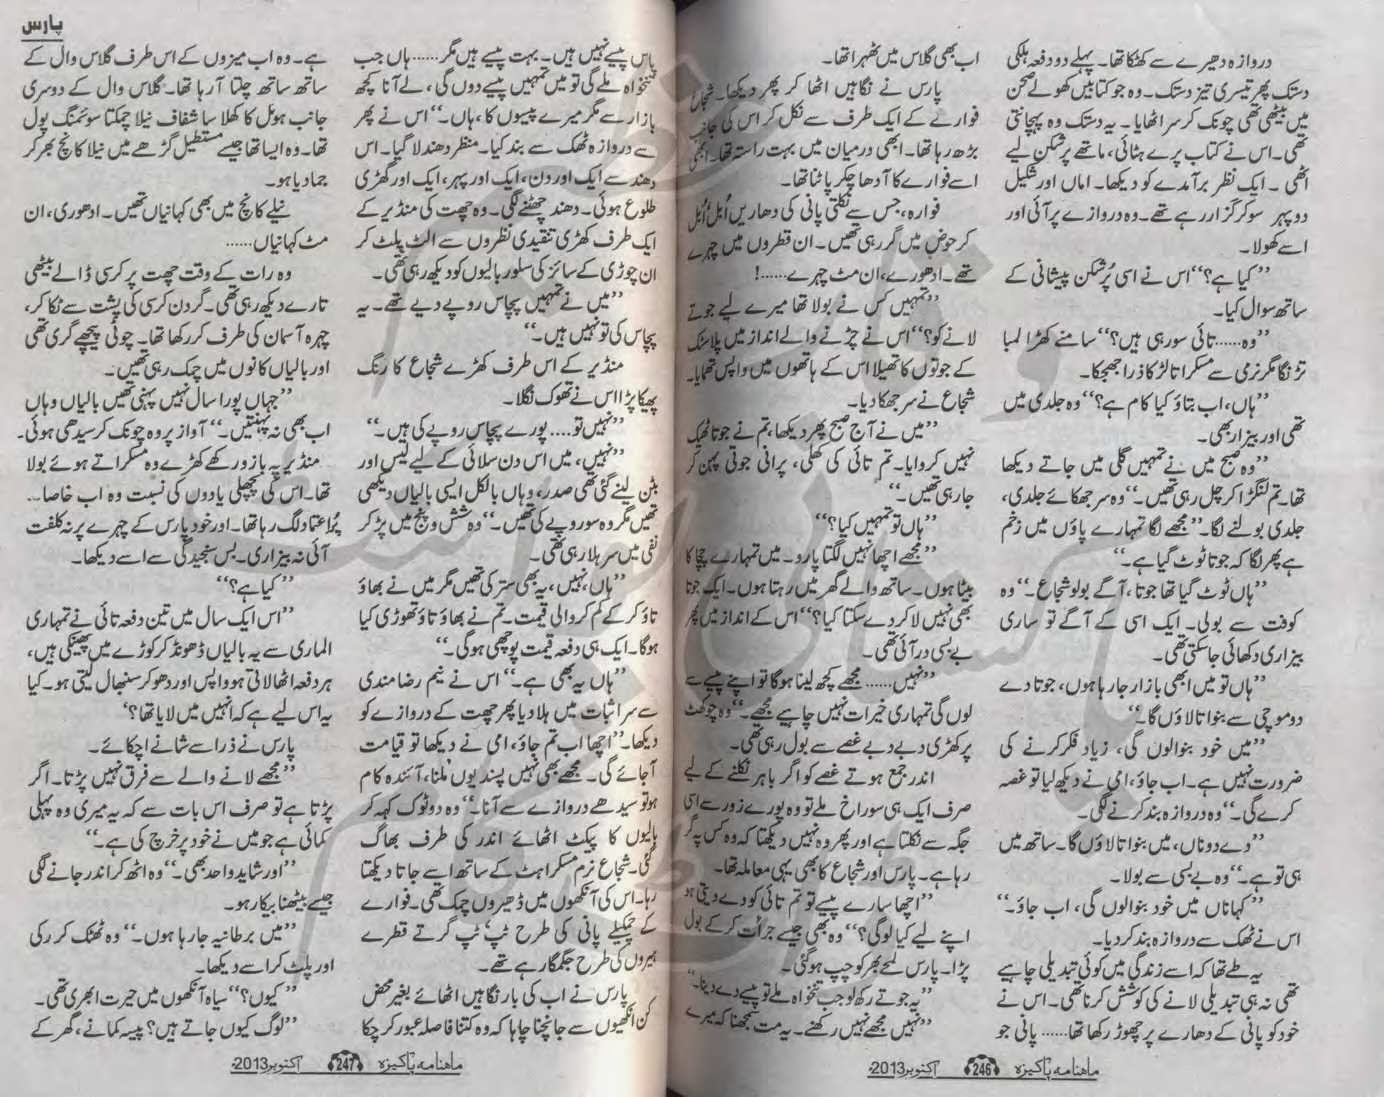 دروازہ دھیرے سے کھٹکا تھا۔ پہلے دو دفعہ ہلکی
دستک پھر تیسری تیز دستک۔ وہ جو کتابیں کھولے صحن
میں بیٹھی تھی چونک کر سر اٹھایا۔ یہ دستک وہ پہچانتی
تھی۔ اس نے کتاب پرے ہٹائی، ماتھے پر شکن لیے
اٹھی۔ ایک نظر برآمدے کو دیکھا۔ اماں اور شکیل
دوپہر سو کر گزار رہے تھے۔ وہ دروازے پر آئی اور
اسے کھولا۔
”کیا ہے؟“ اس نے اسی پُرشکن پیشانی کے
ساتھ سوال کیا۔
”وہ...... تائی سو رہی ہیں؟“ سامنے کھڑا لمبا
تڑنگا مگر نرمی سے مسکراتا لڑکا ذرا جھجکا۔
”ہاں، اب بتاؤ کیا کام ہے؟“ وہ جلدی میں
تھی اور بیزار بھی۔
”وہ صبح میں نے تمہیں گلی میں جاتے دیکھا
تھا۔ تم لنگڑا کر چل رہی تھیں۔“ وہ سر جھکائے جلدی،
جلدی بولنے لگا۔ ”مجھے لگا تمہارے پاؤں میں زخم
ہے پھر لگا کہ جوتا ٹوٹ گیا ہے۔“
”ہاں ٹوٹ گیا تھا جوتا، آگے بولو شجاع۔“ وہ
کوفت سے بولی۔ ایک اسی کے آگے تو ساری
بیزاری دکھائی جاسکتی تھی۔
”ہاں تو میں ابھی بازار جا رہا ہوں، جوتا دے
دو موچی سے بنوا تا لاؤں گا۔“
”میں خود بنوالوں گی، زیاد فکر کرنے کی
ضرورت نہیں ہے۔ اب جاؤ، امی نے دیکھ لیا تو غصہ
کرے گی۔“ وہ دروازہ بند کرنے لگی۔
”دے دوناں، میں بنوا تا لاؤں گا۔ ساتھ میں
ہی تو ہے۔“ وہ بے بسی سے بولا۔
”کہاناں میں خود بنوالوں گی، اب جاؤ۔“
اس نے ٹھک سے دروازہ بند کر دیا۔
یہ طے تھا کہ اسے زندگی میں کوئی تبدیلی چاہیے
تھی نہ ہی تبدیلی لانے کی کوشش کرنا تھی۔ اس نے
خود کو پانی کے دھارے پر چھوڑ رکھا تھا...... پانی جو
اب بھی گلاس میں ٹھہرا تھا۔
پارس نے نگاہیں اٹھا کر پھر دیکھا۔ شجاع
فوارے کے ایک طرف سے نکل کر اس کی جانب
بڑھ رہا تھا۔ ابھی درمیان میں بہت راستہ تھا۔ ابھی
اسے فوارے کا آدھا چکر پاٹنا تھا۔
فوارہ، جس سے نکلتی پانی کی دھاریں اُبل اُبل
کر حوض میں گر رہی تھیں۔ ان قطروں میں چہرے
تھے۔ ادھورے، ان مٹ چہرے......!
”تمہیں کس نے بولا تھا میرے لیے جوتے
لانے کو؟“ اس نے چڑنے والے انداز میں پلاسٹک
کے جوتوں کا تھیلا اس کے ہاتھوں میں واپس تھمایا۔
شجاع نے سر جھکا دیا۔
”میں نے آج صبح پھر دیکھا، تم نے جوتا ٹھیک
نہیں کروایا۔ تم تائی کی کھلی، پرانی جوتی پہن کر
جا رہی تھیں۔“
”ہاں تو تمہیں کیا؟“
”مجھے اچھا نہیں لگتا پارو۔ میں تمہارے چچا کا
بیٹا ہوں۔ ساتھ والے گھر میں رہتا ہوں۔ ایک جوتا
بھی نہیں لا کر دے سکتا کیا؟“ اس کے انداز میں پھر
بے بسی در آئی تھی۔
”نہیں...... مجھے کچھ لینا ہوگا تو اپنے پیسے سے
لوں گی تمہاری خیرات نہیں چاہیے مجھے۔“ وہ چوکھٹ
پر کھڑی دبے دبے غصے سے بول رہی تھی۔
اندر جمع ہوتے غصے کو اگر باہر نکلنے کے لیے
صرف ایک ہی سوراخ ملے تو وہ پورے زور سے اسی
جگہ سے نکلتا ہے اور پھر وہ نہیں دیکھتا کہ وہ کس پہ گر
رہا ہے۔ پارس اور شجاع کا بھی یہی معاملہ تھا۔
”اچھا سارے پیسے تو تم تائی کو دے دیتی ہو
اپنے لیے کیا لوگی؟“ وہ بھی جیسے جرأت کرکے بول
پڑا۔ پارس لمحے بھر کو چپ ہوگئی۔
”یہ جوتے رکھ لو جب تنخواہ ملے تو پیسے دے دینا۔“
”نہیں مجھے نہیں رکھنے۔ یہ مت سمجھنا کہ میرے
ماہنامہ پاکیزہ 246 اکتوبر 2013ء
پارس
پاس پیسے نہیں ہیں۔ بہت پیسے ہیں مگر...... ہاں جب
تنخواہ ملے گی تو میں تمہیں پیسے دوں گی، لے آنا کچھ
بازار سے مگر میرے پیسوں کا، ہاں۔“ اس نے پھر
سے دروازہ ٹھک سے بند کیا۔ منظر دھندلا گیا۔ اس
دھند سے ایک اور دن، ایک اور پہر، ایک اور گھڑی
طلوع ہوئی۔ دھند چھٹنے لگی۔ وہ چھت کی منڈیر کے
ایک طرف کھڑی تنقیدی نظروں سے الٹ پلٹ کر
ان چوڑی کے سائز کی سلور بالیوں کو دیکھ رہی تھی۔
”میں نے تمہیں پچاس روپے دیے تھے۔ یہ
پچاس کی تو نہیں ہیں۔“
منڈیر کے اس طرف کھڑے شجاع کا رنگ
پھیکا پڑا اس نے تھوک نگلا۔
”نہیں تو.... پورے پچاس روپے کی ہیں۔“
”نہیں، میں اس دن سلائی کے لیے لیس اور
بٹن لینے گئی تھی صدر، وہاں بالکل ایسی بالیاں دیکھی
تھیں مگر وہ سو روپے کی تھیں۔“ وہ شش و پنج میں پڑ کر
نفی میں سر ہلا رہی تھی۔
”ہاں، نہیں، یہ بھی ستر کی تھیں مگر میں نے بھاؤ
تاؤ کر کے کم کروالی قیمت۔ تم نے بھاؤ تاؤ تھوڑی کیا
ہوگا۔ ایک ہی دفعہ قیمت پوچھی ہوگی۔“
”ہاں یہ بھی ہے۔“ اس نے نیم رضامندی
سے سر اثبات میں ہلا دیا پھر چھت کے دروازے کو
دیکھا۔ ”اچھا اب تم جاؤ، امی نے دیکھا تو قیامت
آجائے گی۔ مجھے بھی نہیں پسند یوں ملنا، آئندہ کام
ہو تو سیدھے دروازے سے آنا۔“ وہ دو ٹوک کہہ کر
بالیوں کا پیکٹ اٹھائے اندر کی طرف بھاگ
گئی۔ شجاع نرم مسکراہٹ کے ساتھ اسے جاتا دیکھتا
رہا۔ اس کی آنکھوں میں ڈھیروں چمک تھی۔ فوارے
کے چمکیلے پانی کی طرح ٹپ، ٹپ گرتے قطرے
ہیروں کی طرح جگمگا رہے تھے۔
پارس نے اب کی بار نگاہیں اٹھائے بغیر محض
کن انکھیوں سے جانچنا چاہا کہ وہ کتنا فاصلہ عبور کر چکا
ہے۔ وہ اب میزوں کے اس طرف گلاس وال کے
ساتھ ساتھ چلتا آرہا تھا۔ گلاس وال کے دوسری
جانب ہوٹل کا کھلا سا شفاف نیلا چمکتا سوئمنگ پول
تھا۔ وہ ایسا تھا جیسے مستطیل گڑھے میں نیلا کانچ بھر کر
جمادیا ہو۔
نیلے کانچ میں بھی کہانیاں تھیں۔ ادھوری، ان
مٹ کہانیاں......
وہ رات کے وقت چھت پر کرسی ڈالے بیٹھی
تارے دیکھ رہی تھی۔ گردن کرسی کی پشت سے ٹکا کر،
چہرہ آسمان کی طرف کر رکھا تھا۔ چوٹی پیچھے گری تھی
اور بالیاں کانوں میں چمک رہی تھیں۔
”جہاں پورا سال نہیں پہنی تھیں بالیاں وہاں
اب بھی نہ پہنتیں۔“ آواز پر وہ چونک کر سیدھی ہوئی۔
منڈیر پہ بازو رکھے کھڑے وہ مسکراتے ہوئے بولا
تھا۔ اس کی پچھلی یادوں کی نسبت وہ اب خاصا..
پُراعتماد لگ رہا تھا۔ اور خود پارس کے چہرے پر نہ کلفت
آئی نہ بیزاری۔ بس سنجیدگی سے اسے دیکھا۔
”کیا ہے؟“
”اس ایک سال میں تین دفعہ تائی نے تمہاری
الماری سے یہ بالیاں ڈھونڈ کر کوڑے میں پھینکی ہیں،
ہر دفعہ اٹھا لاتی ہو واپس اور دھو کر سنبھال لیتی ہو۔ کیا
یہ اس لیے ہے کہ انہیں میں لایا تھا؟“
پارس نے ذرا سے شانے اچکائے۔
”مجھے لانے والے سے فرق نہیں پڑتا۔ اگر
پڑتا ہے تو صرف اس بات سے کہ یہ میری وہ پہلی
کمائی ہے جو میں نے خود پر خرچ کی ہے۔“
”اور شاید واحد بھی۔“ وہ اٹھ کر اندر جانے لگی
جیسے بیٹھنا بیکار ہو۔
”میں برطانیہ جا رہا ہوں۔“ وہ ٹھٹک کر رکی
اور پلٹ کر اسے دیکھا۔
”کیوں؟“ سیاہ آنکھوں میں حیرت ابھری تھی۔
”لوگ کیوں جاتے ہیں؟ پیسہ کمانے، گھر کے
ماہنامہ پاکیزہ 247 اکتوبر 2013ء